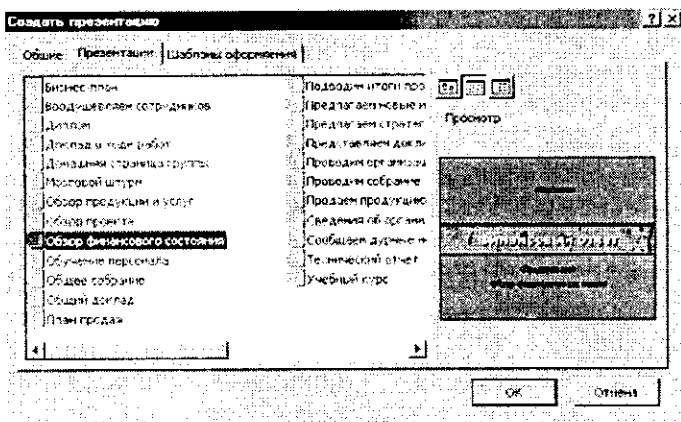 Создать презентацию
Общие Презентации Шаблоны оформления
Бизнес-план
Воодушевляем сотрудников
Диплом
Доклад о ходе работ
Домашняя страница группы
Мозговой штурм
Обзор продукции и услуг
Обзор проекта
Обзор финансового состояния
Обучение персонала
Общее собрание
Общий доклад
План продаж
Подводим итоги про
Предлагаем новые и
Предлагаем стратег
Представляем докла
Проводим организац
Проводим собрание
Продаем продукцию
Сведения об органи
Сообщаем дурные н
Технический отчет
Учебный курс
Просмотр
ОК Отмена